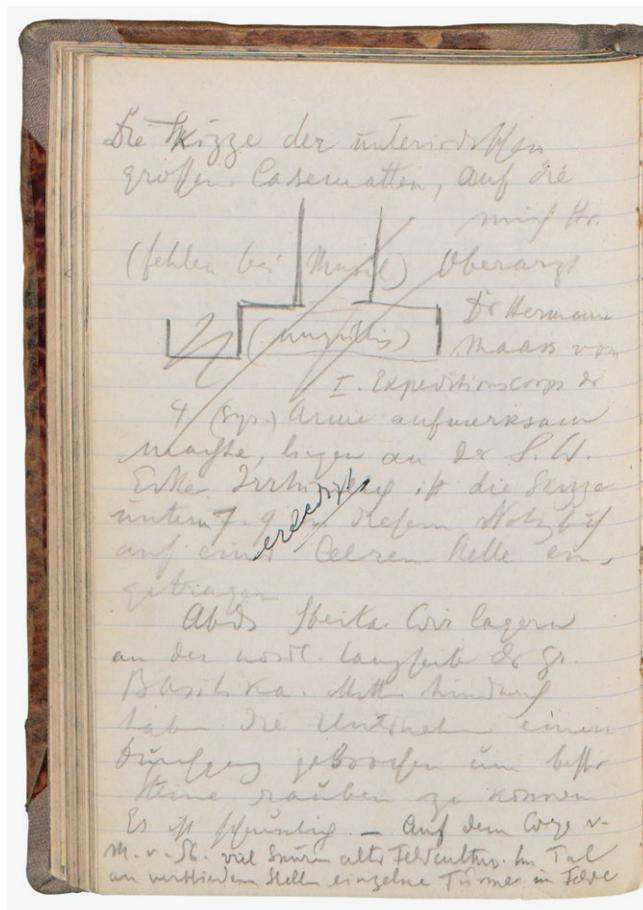 Die Skizze der unterirdischen
grossen Casematten, auf die
mich Hr.
(fehlen bei Musil) Oberarzt
Dr Hermann
(ungiltig) Maass vom
I. Expeditionscorps der
4 (Syr.) Armee aufmerksam
machte, liegen an der S.W.
Ecke. ist die Skizze
unterm 7. 9 in diesem Notizbuch
erledigt
auf einer leeren Stelle ein-
getragen
Abds Sbeita. Wir lagern
an der nördl. Langseite der gr.
Basilika. Mitten hindurch
haben die einen
Durchgang gebrochen um besser
Steine rauben zu können
Es ist schändlich. — Auf dem Wege v.
M. n. Sb. viel Spuren alter Feldcultur. Im Tal
an verschieden Stellen einzelne Türme im Felde